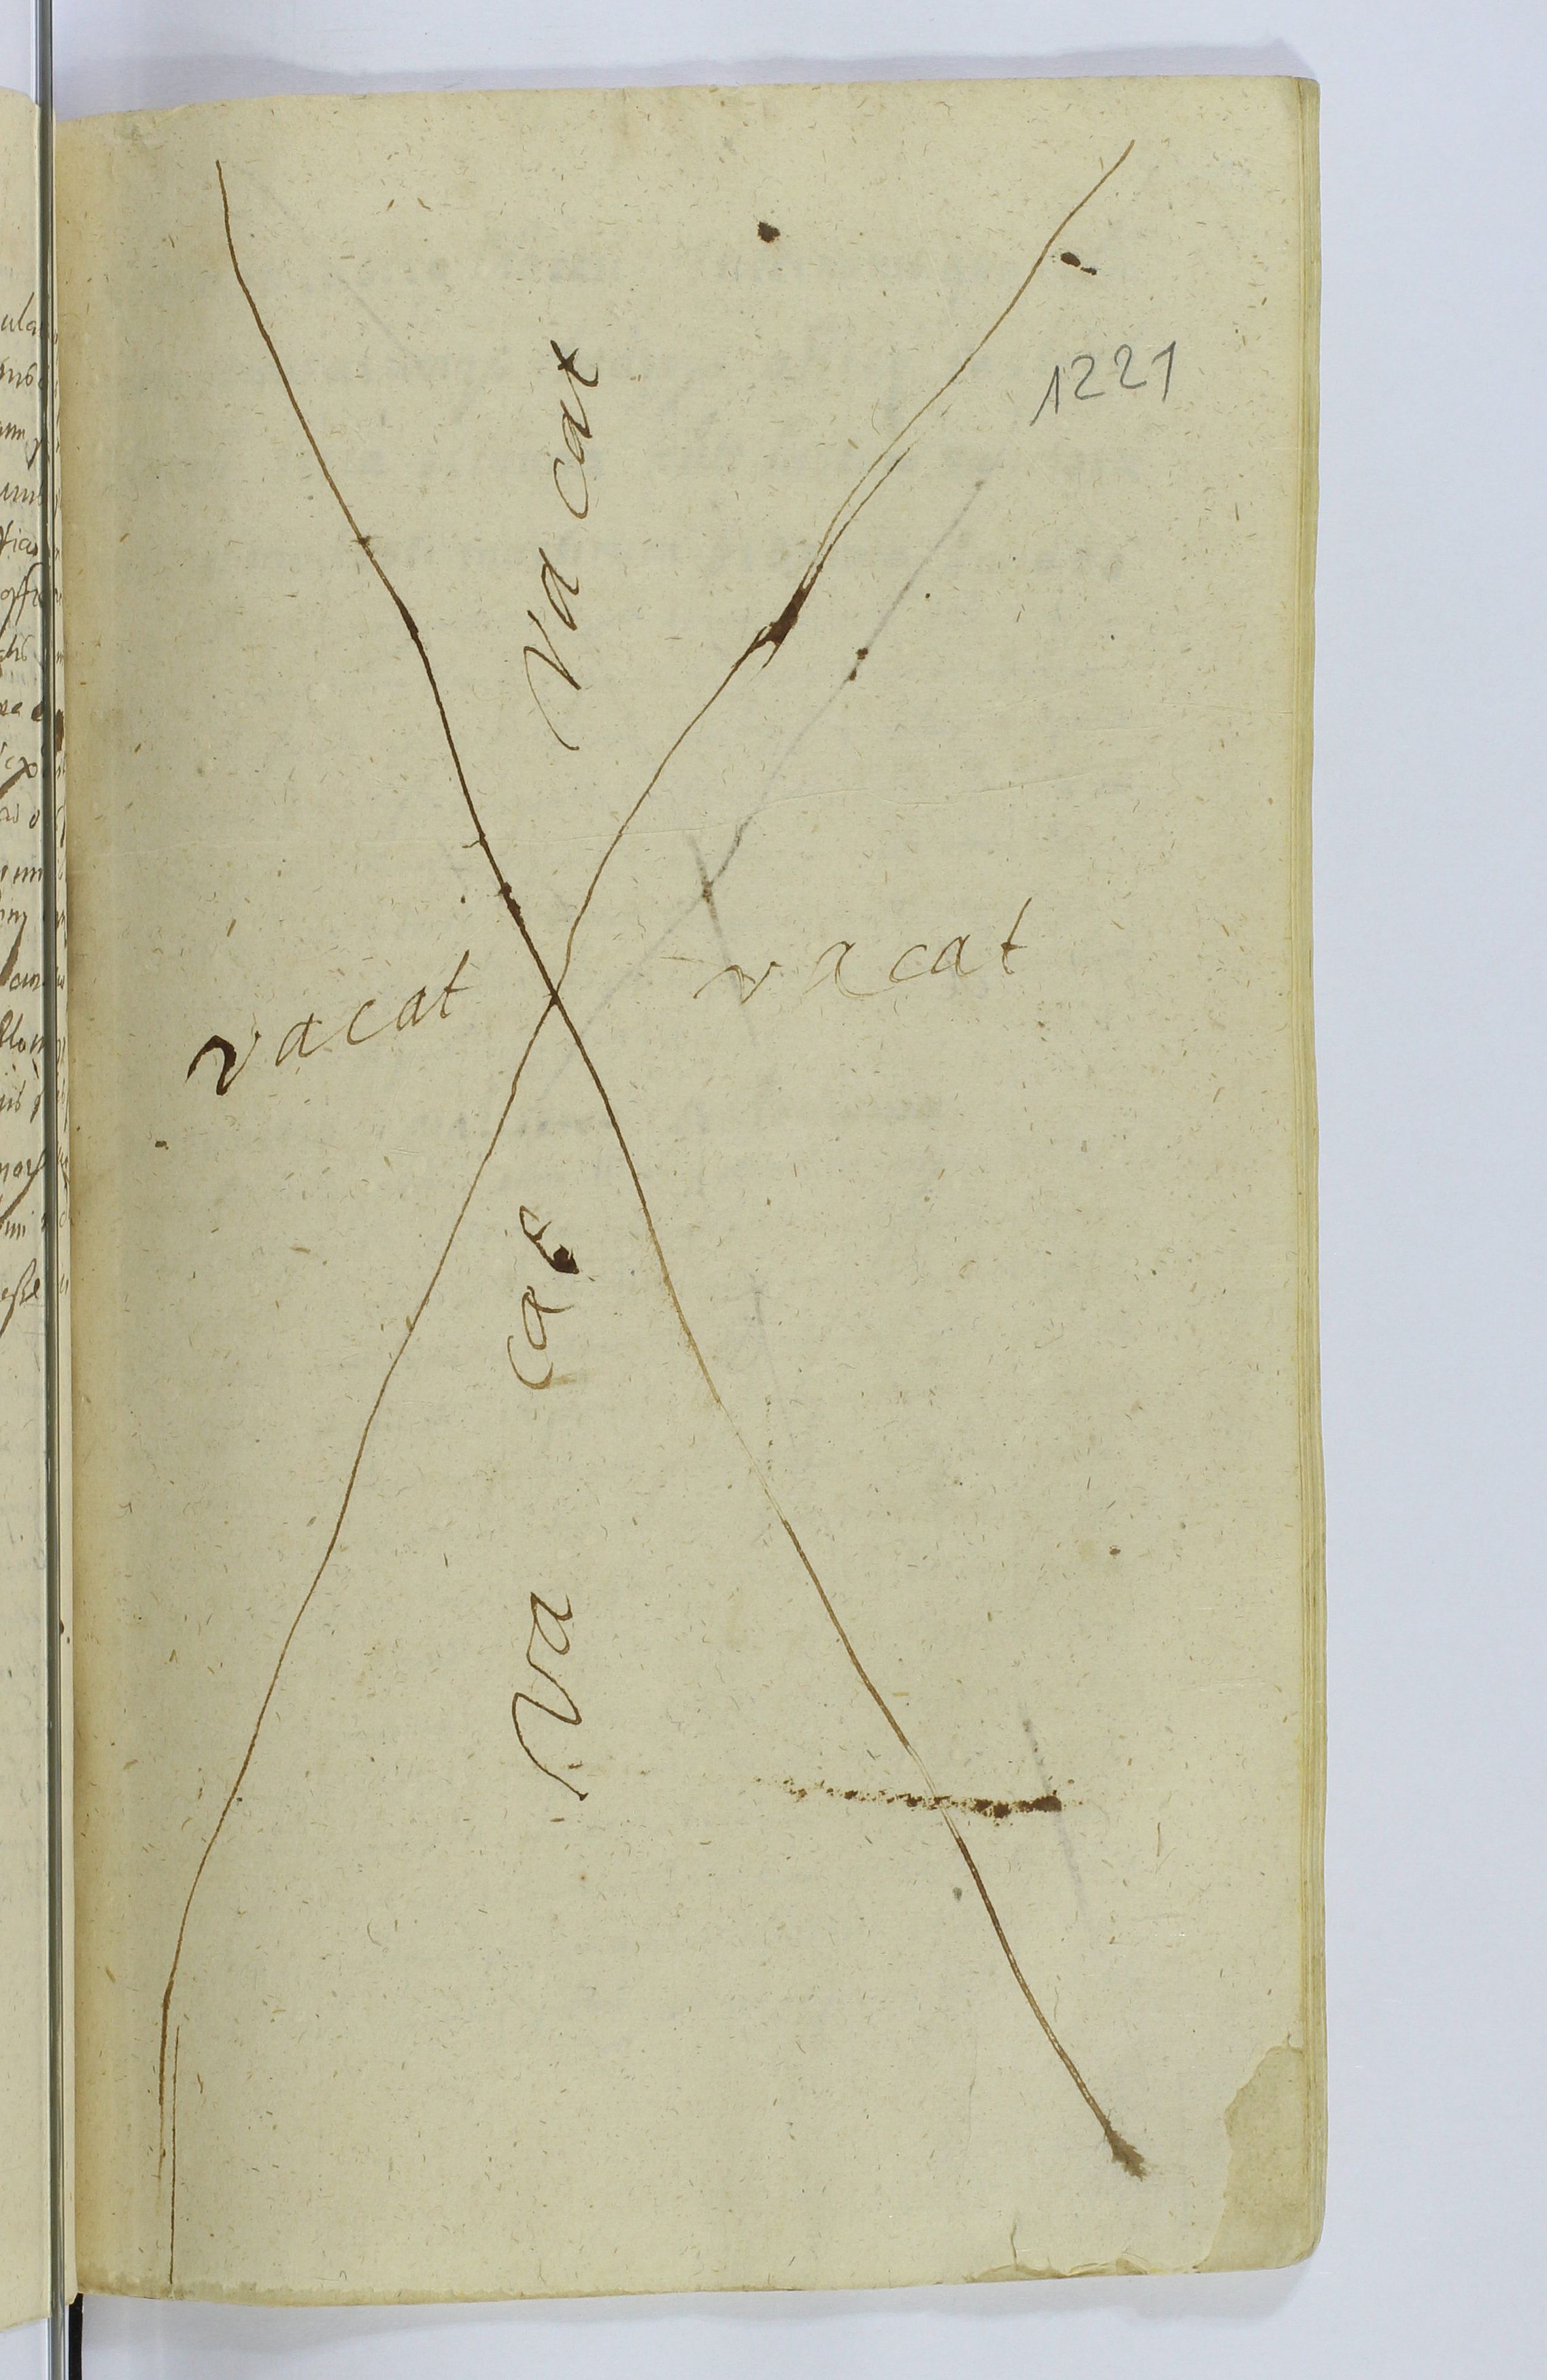 1221
va cat
vacat
vacat
va cat